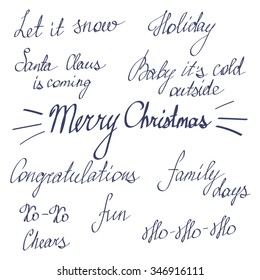 Let it snow
Holiday
Santa Claus
is coming
Baby it's cold
outside
Merry Christmas
Congratulations
family
days
Xo-Xo
fun
Ho-Ho-Ho
Chears
www.shutterstock.com · 346916111